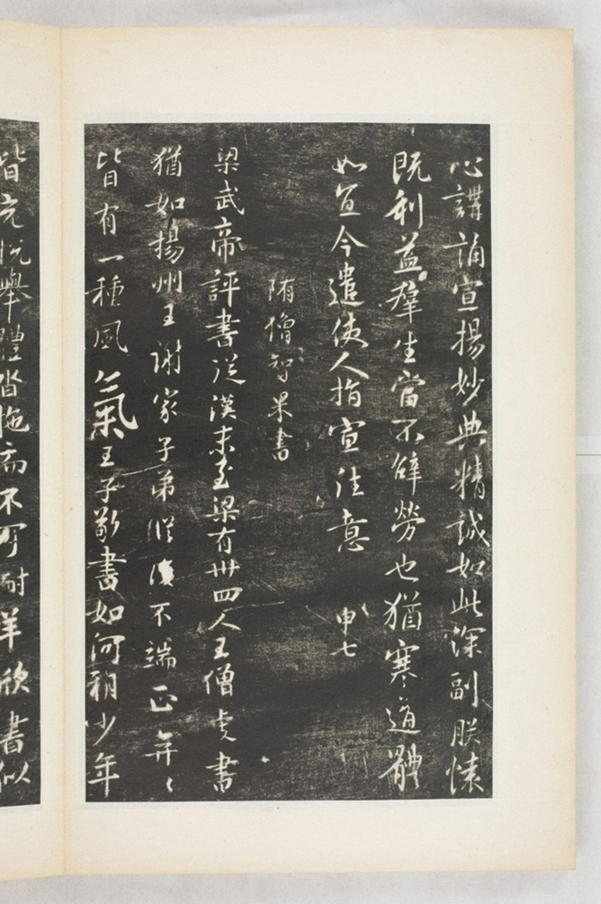 心講誦宣揚妙典精誠如此深副朕懷
既利益群生當不辭勞也猶寒道體
如宜今遣使人指宣往意 申七
隋僧智果書
梁武帝評書從漢末至梁有卅四人王僧虔書
猶如揚州王謝家子弟縱復不端正奕〻
皆有一種風氣王子敬書如河朔少年
皆充悅舉體沓拖而不可耐羊欣書似